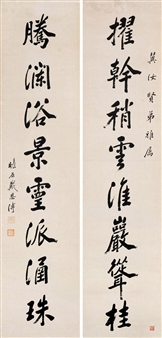 汝賢弟雅屬
擢幹稍雲淮巖聳桂
騰瀾浴景靈派涌珠
石戴恩溥